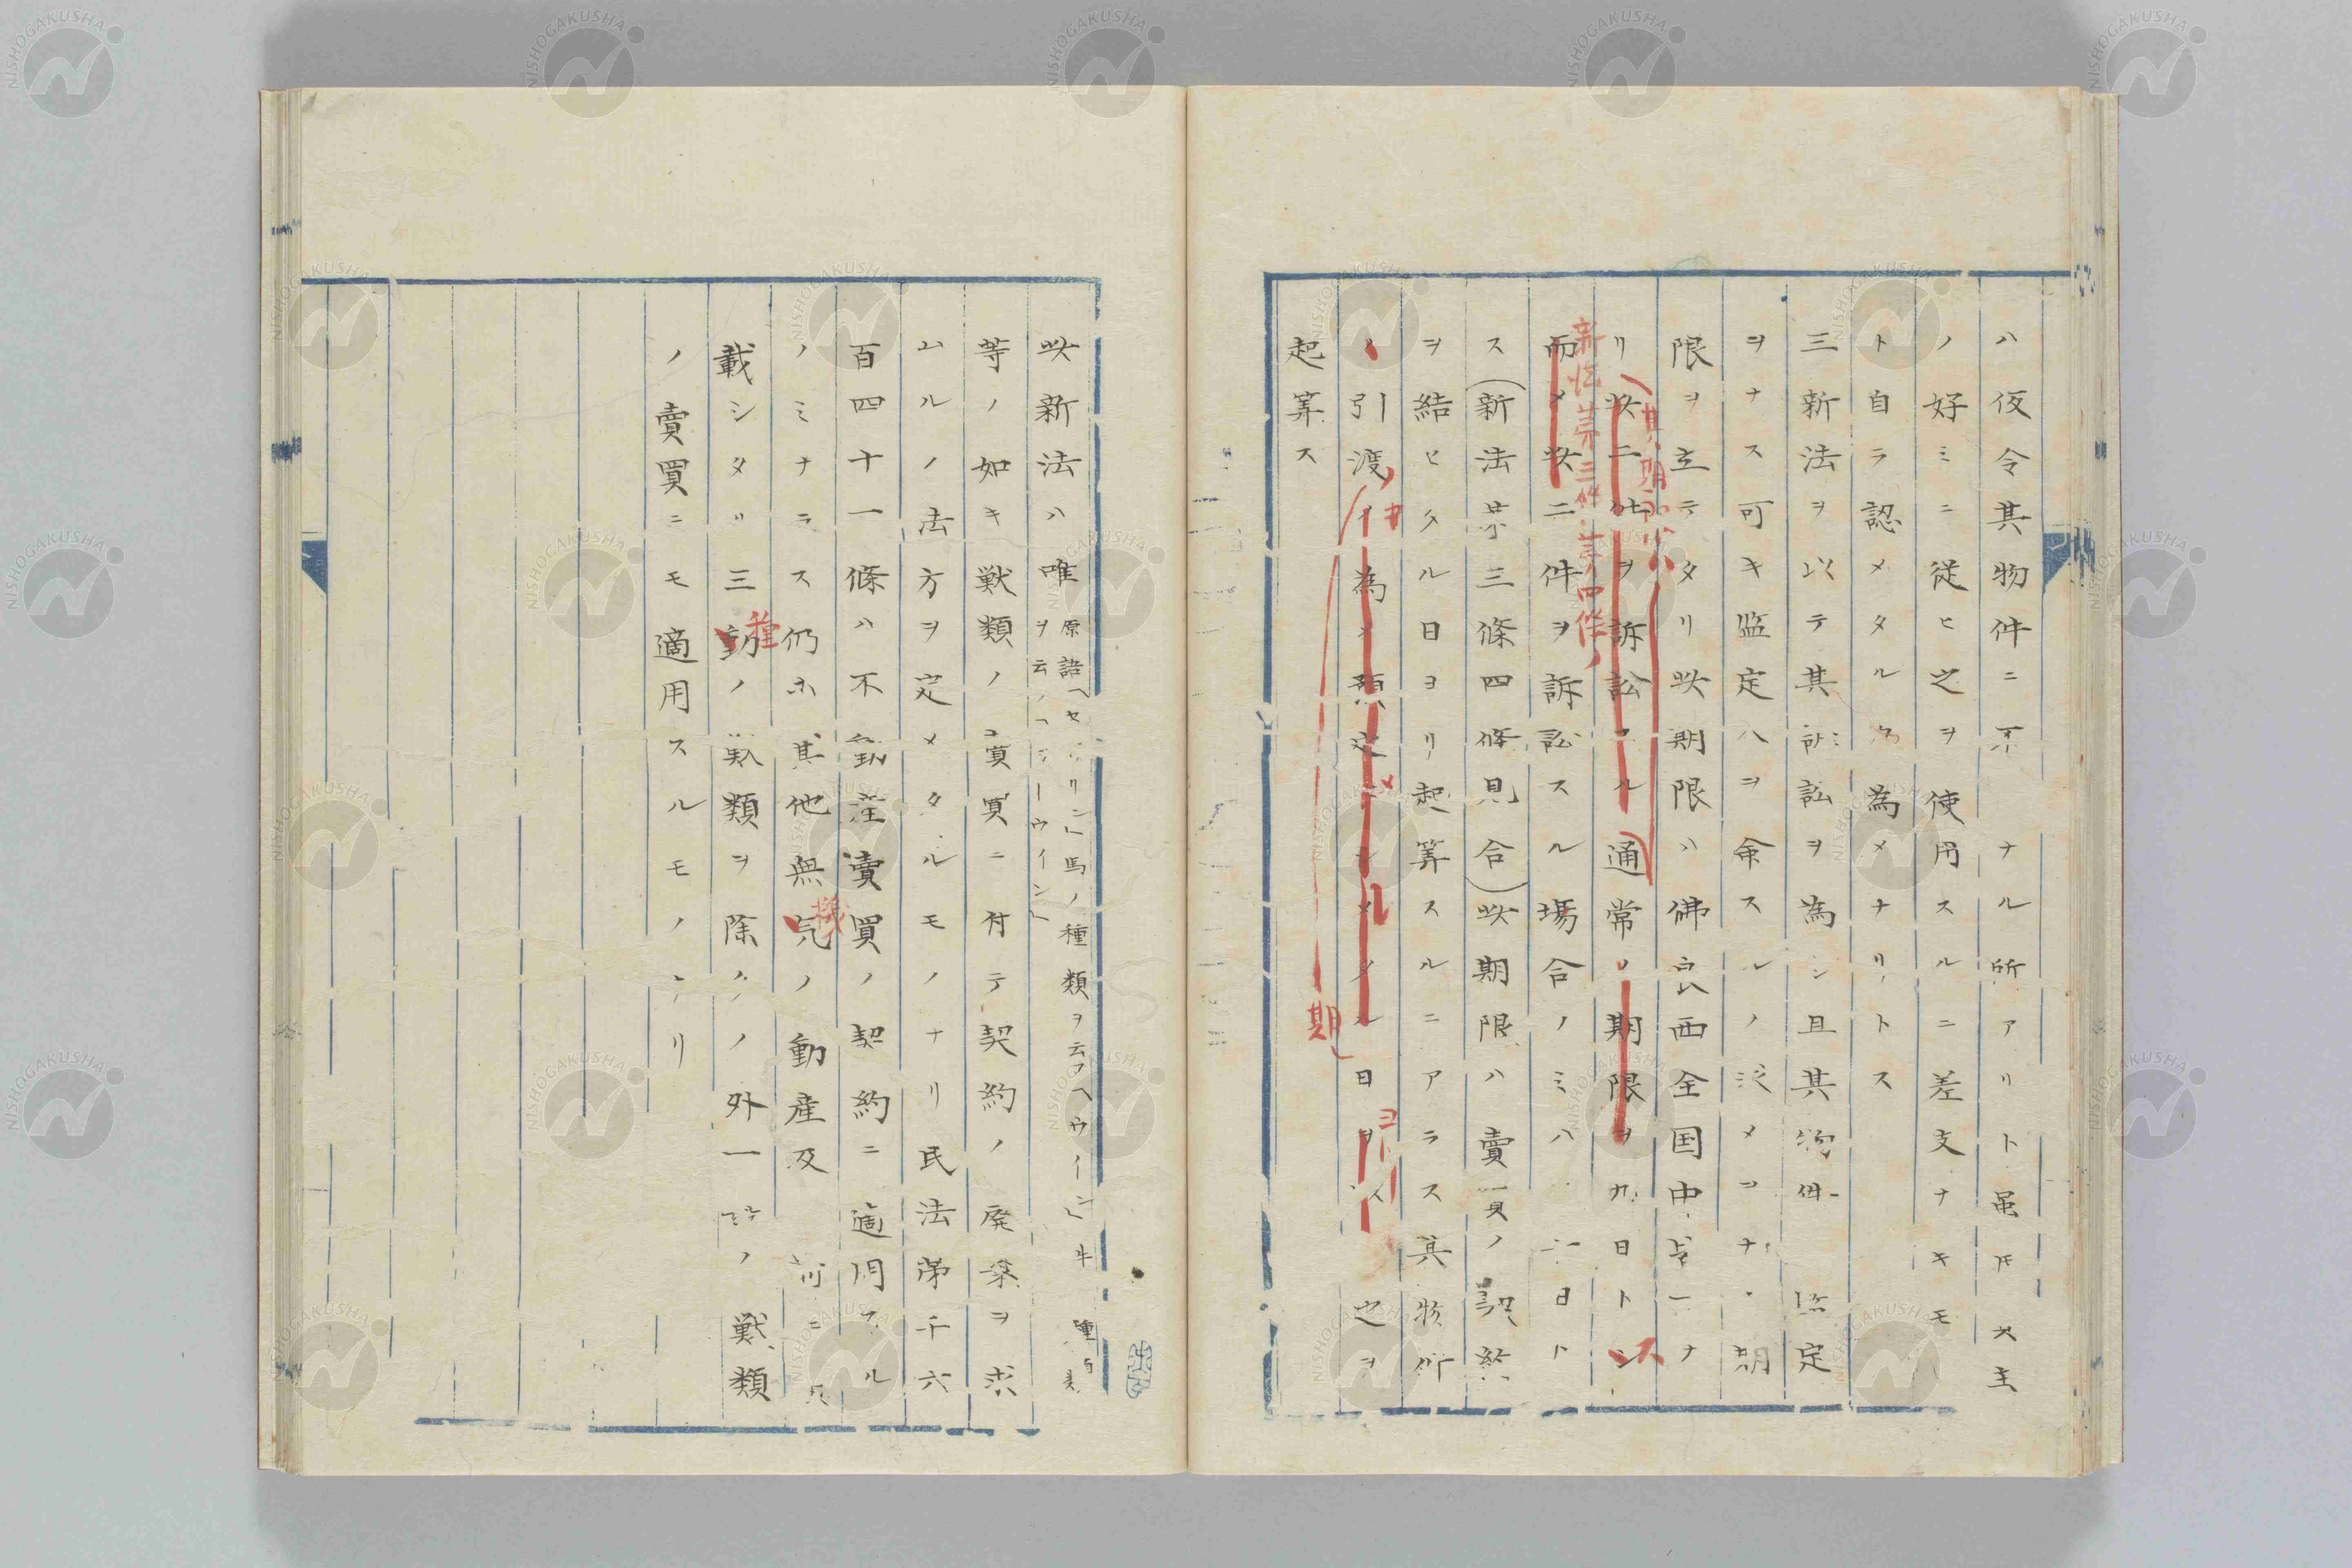 ハ仮令其物件ニ不 ナル所アリト虽𪜈大主
ノ好ミニ従ヒ之ヲ使用スルニ差支ナキモ
ト自ラ認メタル 為メナリトス
三新法ヲ以テ其訴訟ヲ為シ且其物件 定
ヲナス可キ監定人ヲ命スルノ メ ナ 期
限ヲ立テタリ此期限ハ佛良西全国中 一ナ
リ此ニ件ヲ訴訟スル通常ノ期限ヲ九日トシ
其期限ハ
ス
而メ此ニ件ヲ訴訟スル場合ノミハ 日ト
新法第三條第四條ノ
ス(新法第三條四條見合)此期限ハ賣買ノ契約
ヲ結ヒタル日ヨリ起算スルニアラス其物件
ノ引渡ノ為メ預定 シメタル日ヲ以 之ヲ
期
ヨリ
起算ス
此新法ハ唯原語「セ リン」馬ノ種類ヲ云フ「ヲウイーン」牛 種類
ヲ云ノ「 ーウイーン」
等ノ如キ獣類ノ賣買ニ付テ契約ノ廃棄ヲ求
ムルノ法方ヲ定メタルモノナリ民法第千六
百四十一條ハ不動産賣買ノ契約ニ適用スル
ノミナラス仍ホ其他無気ノ動産及 前ニ
機
載シタル三動ノ獣類ヲ除クノ外一 ノ獣類
種
ノ賣買ニモ適用スルモノナリ
NISHOGAKUSHA